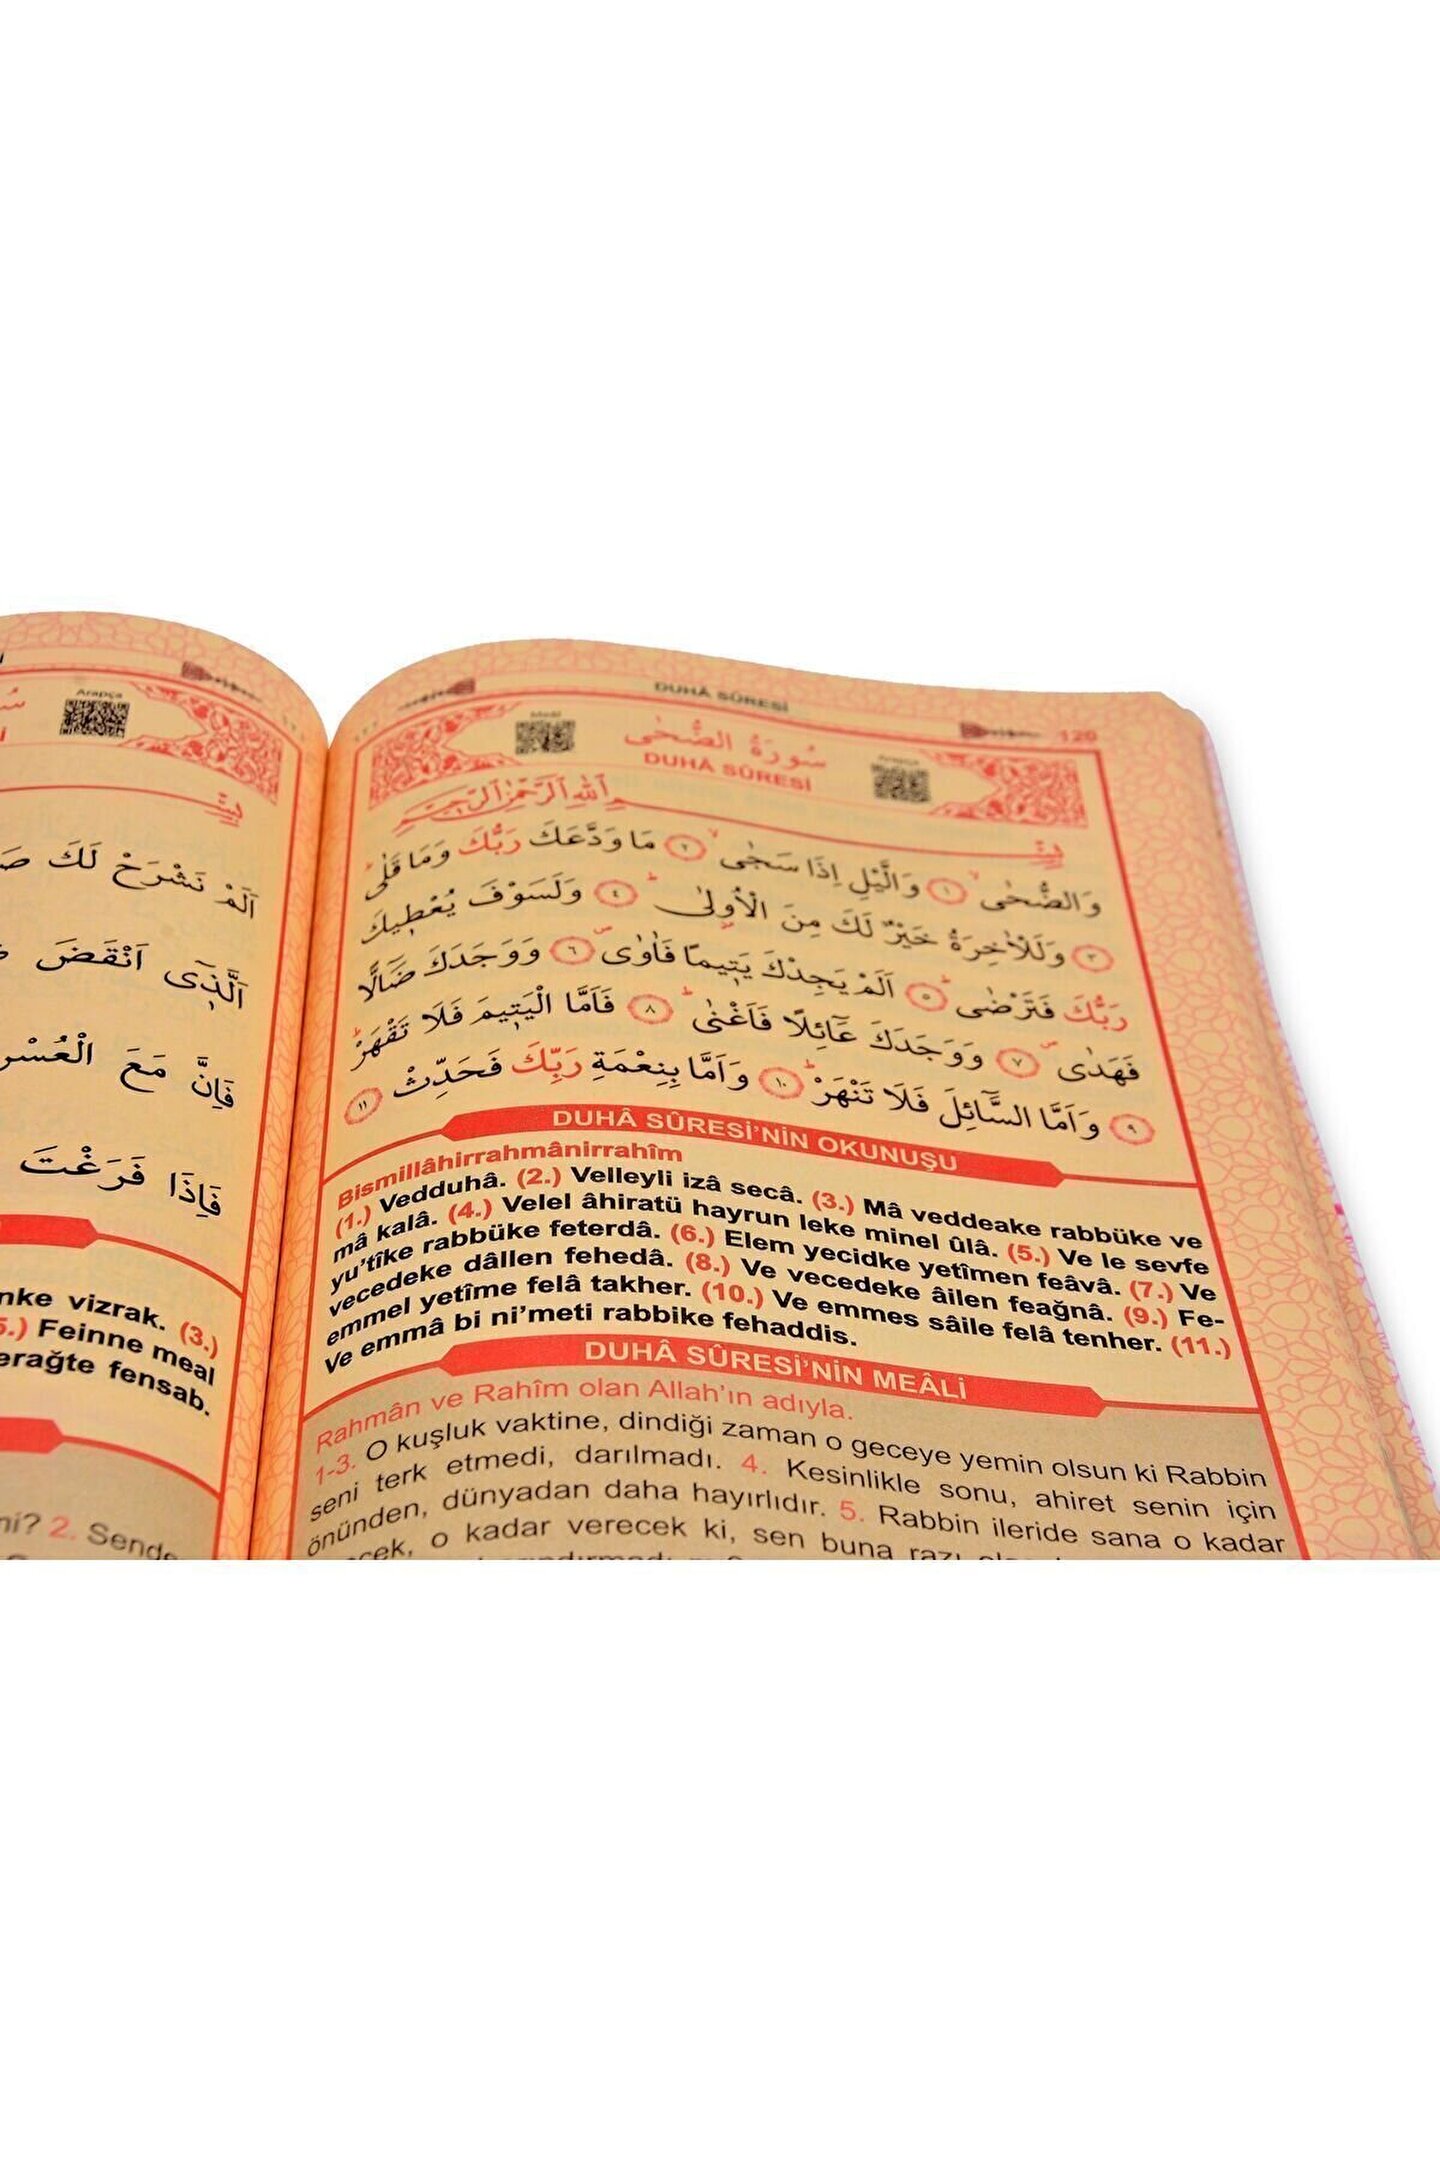 Arapça
اَلَمْ نَشْرَحْ لَكَ
اَلَّذ۪ٓي اَنْقَضَ
فَاِنَّ مَعَ الْعُسْرِ
فَاِذَا فَرَغْتَ
vizrak. (3.)
Feinne meal
fensab.
2. Sende
DUHÂ SÛRESİ
120
Meâl
سُورَةُ الضُّحٰى
Arapça
DUHÂ SÛRESİ
بِسْمِ اللّٰهِ الرَّحْمٰنِ الرَّح۪يمِ
وَالضُّحٰىۙ ١ وَالَّيْلِ اِذَا سَجٰىۙ ٢ مَا وَدَّعَكَ رَبُّكَ وَمَا قَلٰىۜ
٣ وَلَلْاٰخِرَةُ خَيْرٌ لَكَ مِنَ الْاُو۫لٰىۜ ٤ وَلَسَوْفَ يُعْط۪يكَ
رَبُّكَ فَتَرْضٰىۜ ٥ اَلَمْ يَجِدْكَ يَت۪يمًا فَاٰوٰىۖ ٦ وَوَجَدَكَ ضَٓالًّا
فَهَدٰىۖ ٧ وَوَجَدَكَ عَٓائِلًا فَاَغْنٰىۜ ٨ فَاَمَّا الْيَت۪يمَ فَلَا تَقْهَرْۜ
٩ وَاَمَّا السَّٓائِلَ فَلَا تَنْهَرْۜ ١٠ وَاَمَّا بِنِعْمَةِ رَبِّكَ فَحَدِّثْ ١١
DUHÂ SÛRESİ'NİN OKUNUŞU
Bismillâhirrahmânirrahîm
(1.) Vedduhâ. (2.) Velleyli izâ secâ. (3.) Mâ veddeake rabbüke ve
mâ kalâ. (4.) Velel âhiratü hayrun leke minel ûlâ. (5.) Ve le sevfe
yu'tîke rabbüke feterdâ. (6.) Elem yecidke yetîmen feâvâ. (7.) Ve
vecedeke dâllen fehedâ. (8.) Ve vecedeke âilen feağnâ. (9.) Fe-
emmel yetîme felâ takher. (10.) Ve emmes sâile felâ tenher. (11.)
Ve emmâ bi ni'meti rabbike fehaddis.
DUHÂ SÛRESİ'NİN MEÂLİ
Rahmân ve Rahîm olan Allah'ın adıyla.
1-3. O kuşluk vaktine, dindiği zaman o geceye yemin olsun ki Rabbin
seni terk etmedi, darılmadı. 4. Kesinlikle sonu, ahiret senin için
önünden, dünyadan daha hayırlıdır. 5. Rabbin ileride sana o kadar
o kadar verecek ki, sen buna razı